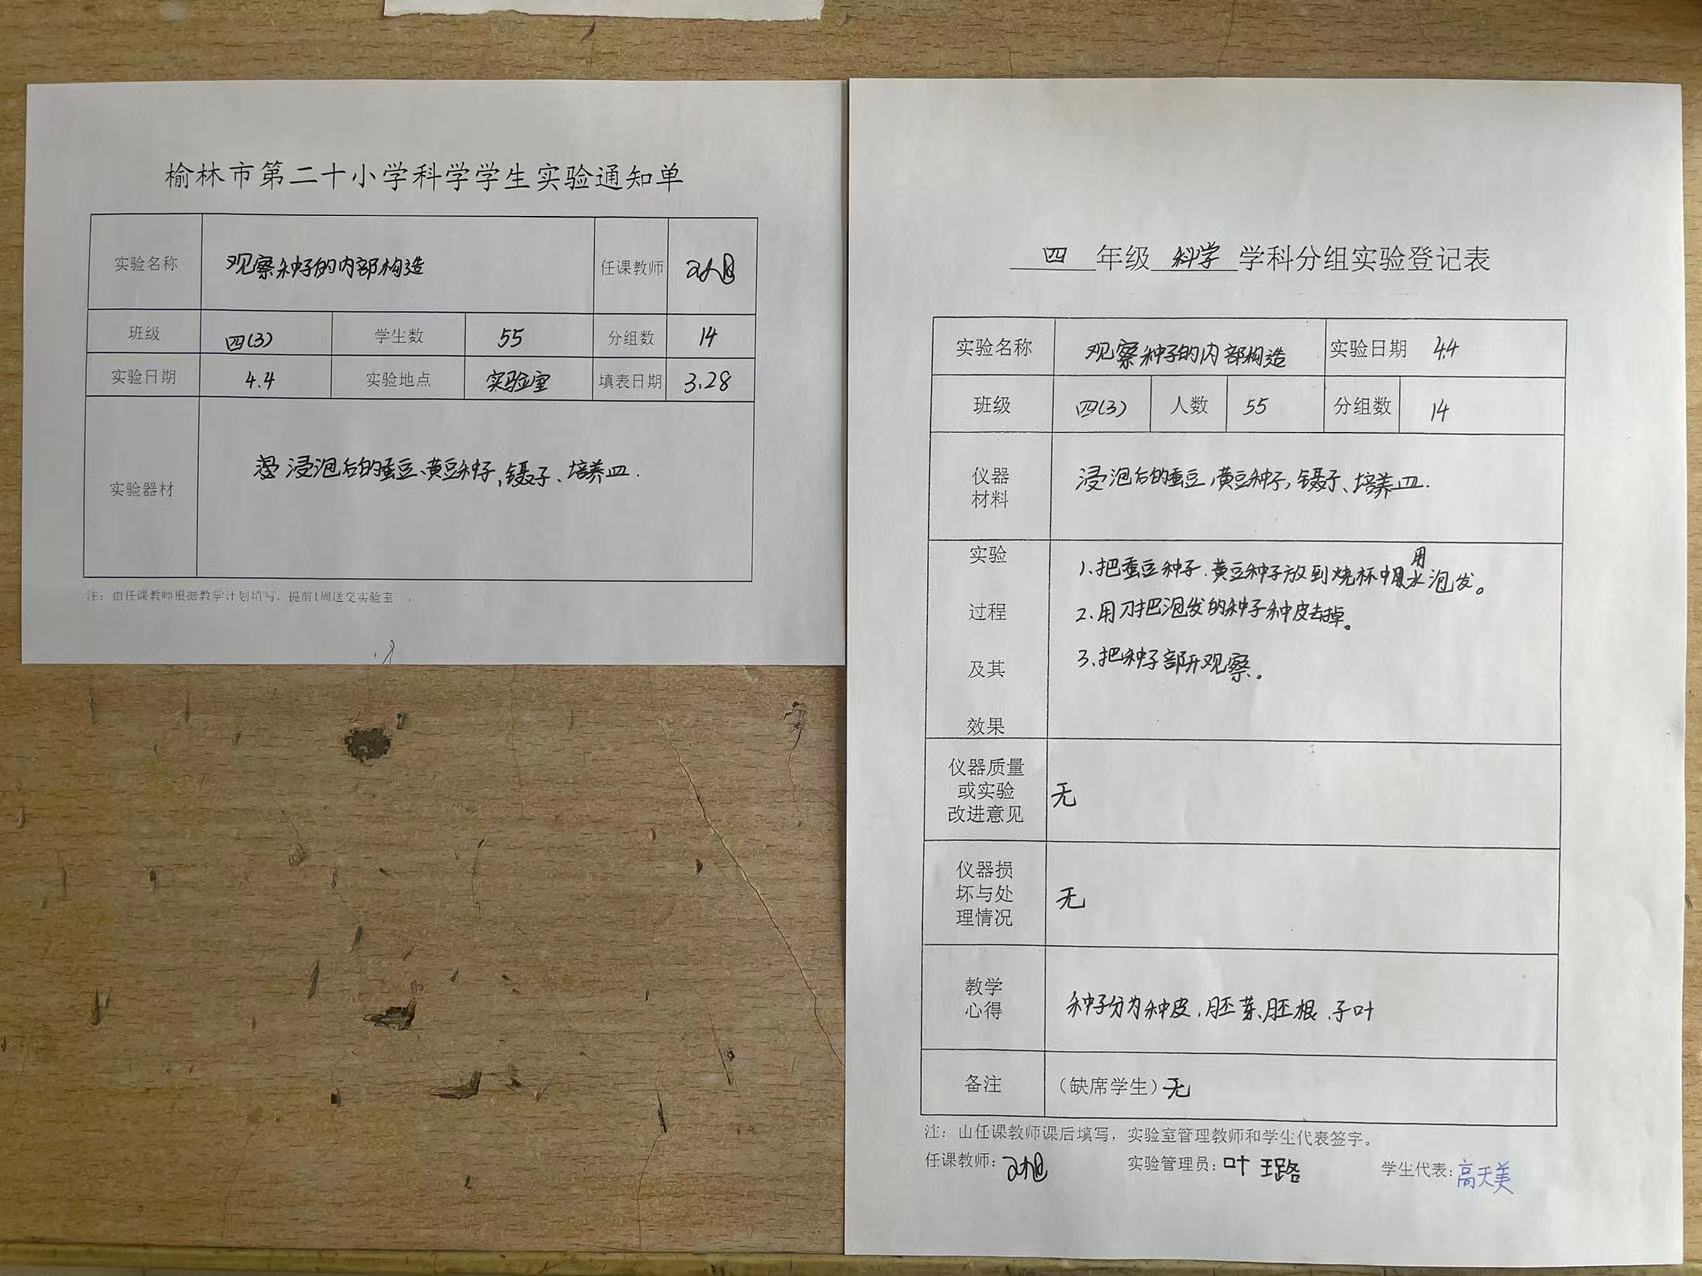 榆林市第二十小学科学学生实验通知单
实验名称 观察种子的内部构造 任课教师
班级 四(3) 学生数 55 分组数 14
实验日期 4.4 实验地点 实验室 填表日期 3.28
实验器材 浸泡后的蚕豆、黄豆种子,镊子、培养皿.
注：由任课教师根据教学计划填写，提前1周送交实验室 .
四 年级 科学 学科分组实验登记表
实验名称 观察种子的内部构造 实验日期 4.4
班级 四(3) 人数 55 分组数 14
仪器
材料
浸泡后的蚕豆,黄豆种子,镊子、培养皿.
实验
过程
及其
效果
1、把蚕豆种子、黄豆种子放到烧杯中用水泡发。
2、用刀把泡发的种子种皮去掉。
3、把种子部开观察。
仪器质量
或实验
改进意见
无
仪器损
坏与处
理情况
无
教学
心得
种子分为种皮、胚芽、胚根、子叶
备注 （缺席学生）无
注：山任课教师课后填写，实验室管理教师和学生代表签字。
任课教师： 实验管理员：叶 璐 学生代表：高天美